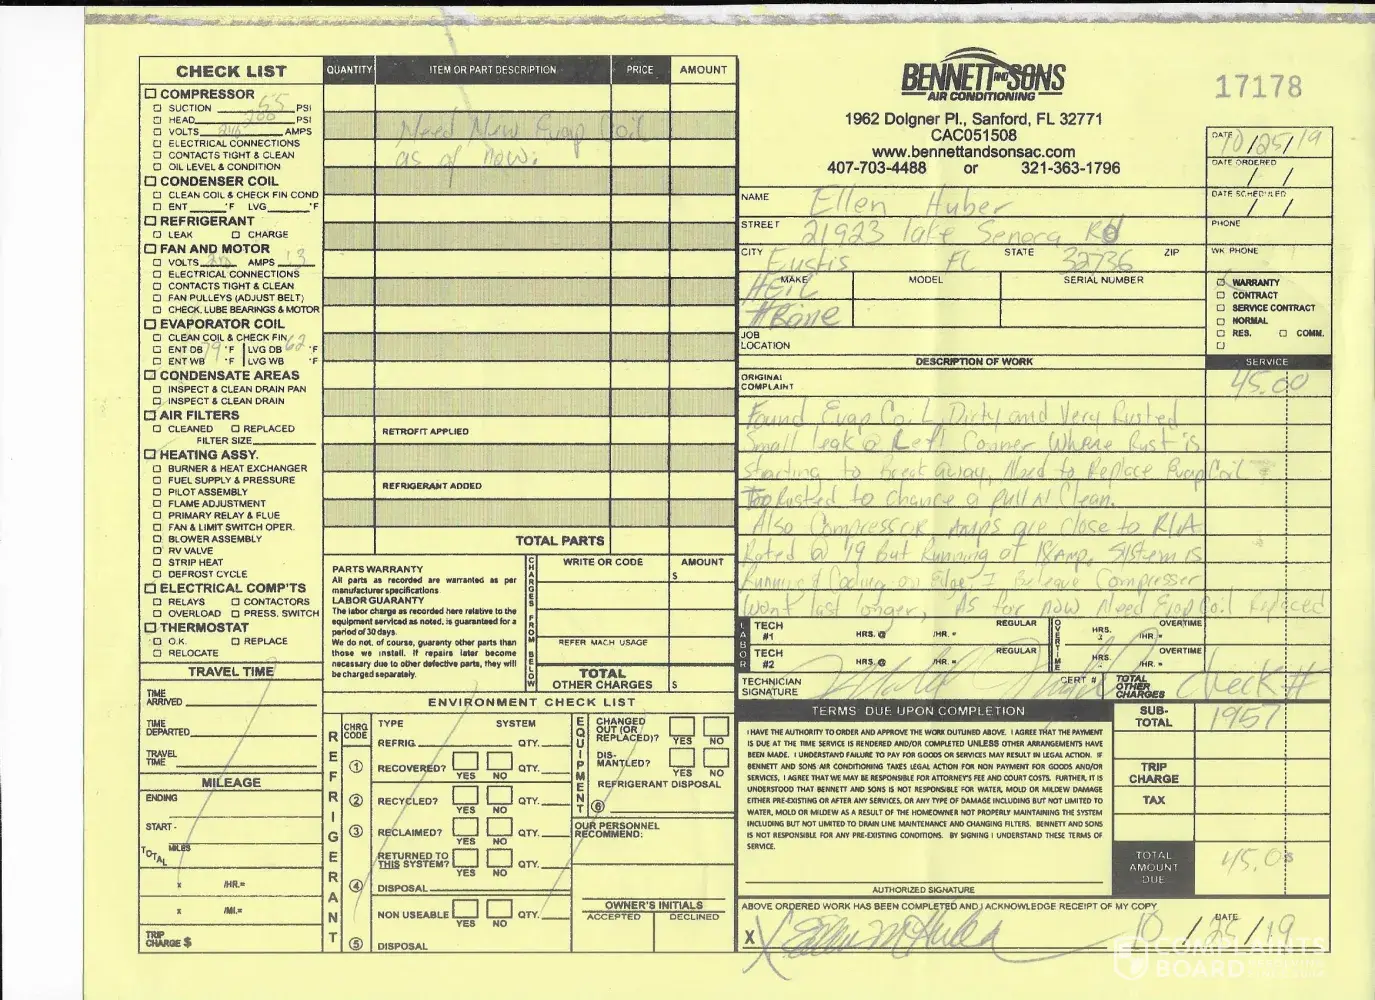 BENNETT AND SONS
AIR CONDITIONING
1962 Dolgner Pl., Sanford, FL 32771
CAC051508
www.bennettandsonsac.com
407-703-4488 or 321-363-1796
17178
DATE 10/25/19
DATE ORDERED / /
DATE SCHEDULED / /
PHONE
WK PHONE
NAME Ellen Huber
STREET 21923 lake Senora Rd
CITY Eustis FL STATE 32736 ZIP
MAKE HEIL MODEL SERIAL NUMBER
JOB
LOCATION
WARRANTY
CONTRACT
SERVICE CONTRACT
NORMAL
RES. COMM.
DESCRIPTION OF WORK SERVICE
ORIGINAL
COMPLAINT 45.00
Found Evap Coil Dirty and Very Rusted
Small leak @ Left Conner Where Rust is
starting to break away, Need to Replace Evap Coil
Too Rusted to chance a pull N Clean.
Also Compressor Amps are close to RLA
Rated @ 19 but Running at 18 Amp. System is
Running & Cooling on Edge, I Beleave Compressor
Wont last longer, As for now Need Evap Coil Replaced
LABOR
TECH #1 HRS. @ /HR. = REGULAR
TECH #2 HRS. @ /HR. = REGULAR
OVERTIME
HRS. /HR. = OVERTIME
HRS. /HR. = OVERTIME
TECHNICIAN
SIGNATURE CERT #
TOTAL
OTHER
CHARGES Check #
TERMS DUE UPON COMPLETION
SUB-
TOTAL 1957
I HAVE THE AUTHORITY TO ORDER AND APPROVE THE WORK OUTLINED ABOVE. I AGREE THAT THE PAYMENT
IS DUE AT THE TIME SERVICE IS RENDERED AND/OR COMPLETED UNLESS OTHER ARRANGEMENTS HAVE
BEEN MADE. I UNDERSTAND FAILURE TO PAY FOR GOODS OR SERVICES MAY RESULT IN LEGAL ACTION. IF
BENNETT AND SONS AIR CONDITIONING TAKES LEGAL ACTION FOR NON PAYMENT FOR GOODS AND/OR
SERVICES, I AGREE THAT WE MAY BE RESPONSIBLE FOR ATTORNEY'S FEE AND COURT COSTS. FURTHER, IT IS
UNDERSTOOD THAT BENNETT AND SONS IS NOT RESPONSIBLE FOR WATER, MOLD OR MILDEW DAMAGE
EITHER PRE-EXISTING OR AFTER ANY SERVICES, OR ANY TYPE OF DAMAGE INCLUDING BUT NOT LIMITED TO
WATER, MOLD OR MILDEW AS A RESULT OF THE HOMEOWNER NOT PROPERLY MAINTAINING THE SYSTEM
INCLUDING BUT NOT LIMITED TO DRAIN LINE MAINTENANCE AND CHANGING FILTERS. BENNETT AND SONS
IS NOT RESPONSIBLE FOR ANY PRE-EXISTING CONDITIONS. BY SIGNING I UNDERSTAND THESE TERMS OF
SERVICE.
TRIP
CHARGE
TAX
TOTAL
AMOUNT
DUE 45.00
AUTHORIZED SIGNATURE
ABOVE ORDERED WORK HAS BEEN COMPLETED AND I ACKNOWLEDGE RECEIPT OF MY COPY.
X DATE 10/25/19
CHECK LIST
COMPRESSOR
SUCTION 55 PSI
HEAD 200 PSI
VOLTS AMPS
ELECTRICAL CONNECTIONS
CONTACTS TIGHT & CLEAN
OIL LEVEL & CONDITION
CONDENSER COIL
CLEAN COIL & CHECK FIN COND
ENT °F LVG °F
REFRIGERANT
LEAK CHARGE
FAN AND MOTOR
VOLTS AMPS
ELECTRICAL CONNECTIONS
CONTACTS TIGHT & CLEAN
FAN PULLEYS (ADJUST BELT)
CHECK, LUBE BEARINGS & MOTOR
EVAPORATOR COIL
CLEAN COIL & CHECK FIN
ENT DB 79 °F LVG DB 62 °F
ENT WB °F LVG WB °F
CONDENSATE AREAS
INSPECT & CLEAN DRAIN PAN
INSPECT & CLEAN DRAIN
AIR FILTERS
CLEANED REPLACED
FILTER SIZE
HEATING ASSY.
BURNER & HEAT EXCHANGER
FUEL SUPPLY & PRESSURE
PILOT ASSEMBLY
FLAME ADJUSTMENT
PRIMARY RELAY & FLUE
FAN & LIMIT SWITCH OPER.
BLOWER ASSEMBLY
RV VALVE
STRIP HEAT
DEFROST CYCLE
ELECTRICAL COMP'TS
RELAYS CONTACTORS
OVERLOAD PRESS. SWITCH
THERMOSTAT
O.K. REPLACE
RELOCATE
TRAVEL TIME
TIME
ARRIVED
TIME
DEPARTED
TRAVEL
TIME
MILEAGE
ENDING
START -
TOTAL MILES
x /HR.=
x /MI.=
TRIP
CHARGE $
QUANTITY ITEM OR PART DESCRIPTION PRICE AMOUNT
Need New Evap Coil
as of now.
RETROFIT APPLIED
REFRIGERANT ADDED
TOTAL PARTS
PARTS WARRANTY
All parts as recorded are warranted as per
manufacturer specifications.
LABOR GUARANTY
The labor charge as recorded here relative to the
equipment serviced as noted, is guaranteed for a
period of 30 days.
We do not, of course, guaranty other parts than
those we install. If repairs later become
necessary due to other defective parts, they will
be charged separately.
CHARGES FROM BELOW
WRITE OR CODE AMOUNT
$
REFER MACH USAGE
TOTAL
OTHER CHARGES $
ENVIRONMENT CHECK LIST
REFRIGERANT
CHRG
CODE
TYPE SYSTEM
REFRIG. QTY.
1 RECOVERED? YES NO QTY.
2 RECYCLED? YES NO QTY.
3 RECLAIMED? YES NO QTY.
RETURNED TO
THIS SYSTEM? YES NO QTY.
4 DISPOSAL
NON USEABLE YES NO QTY.
5 DISPOSAL
EQUIPMENT
CHANGED
OUT (OR
REPLACED)? YES NO
DIS-
MANTLED? YES NO
REFRIGERANT DISPOSAL
6
OUR PERSONNEL
RECOMMEND:
OWNER'S INITIALS
ACCEPTED DECLINED
COMPLAINTS
BOARD